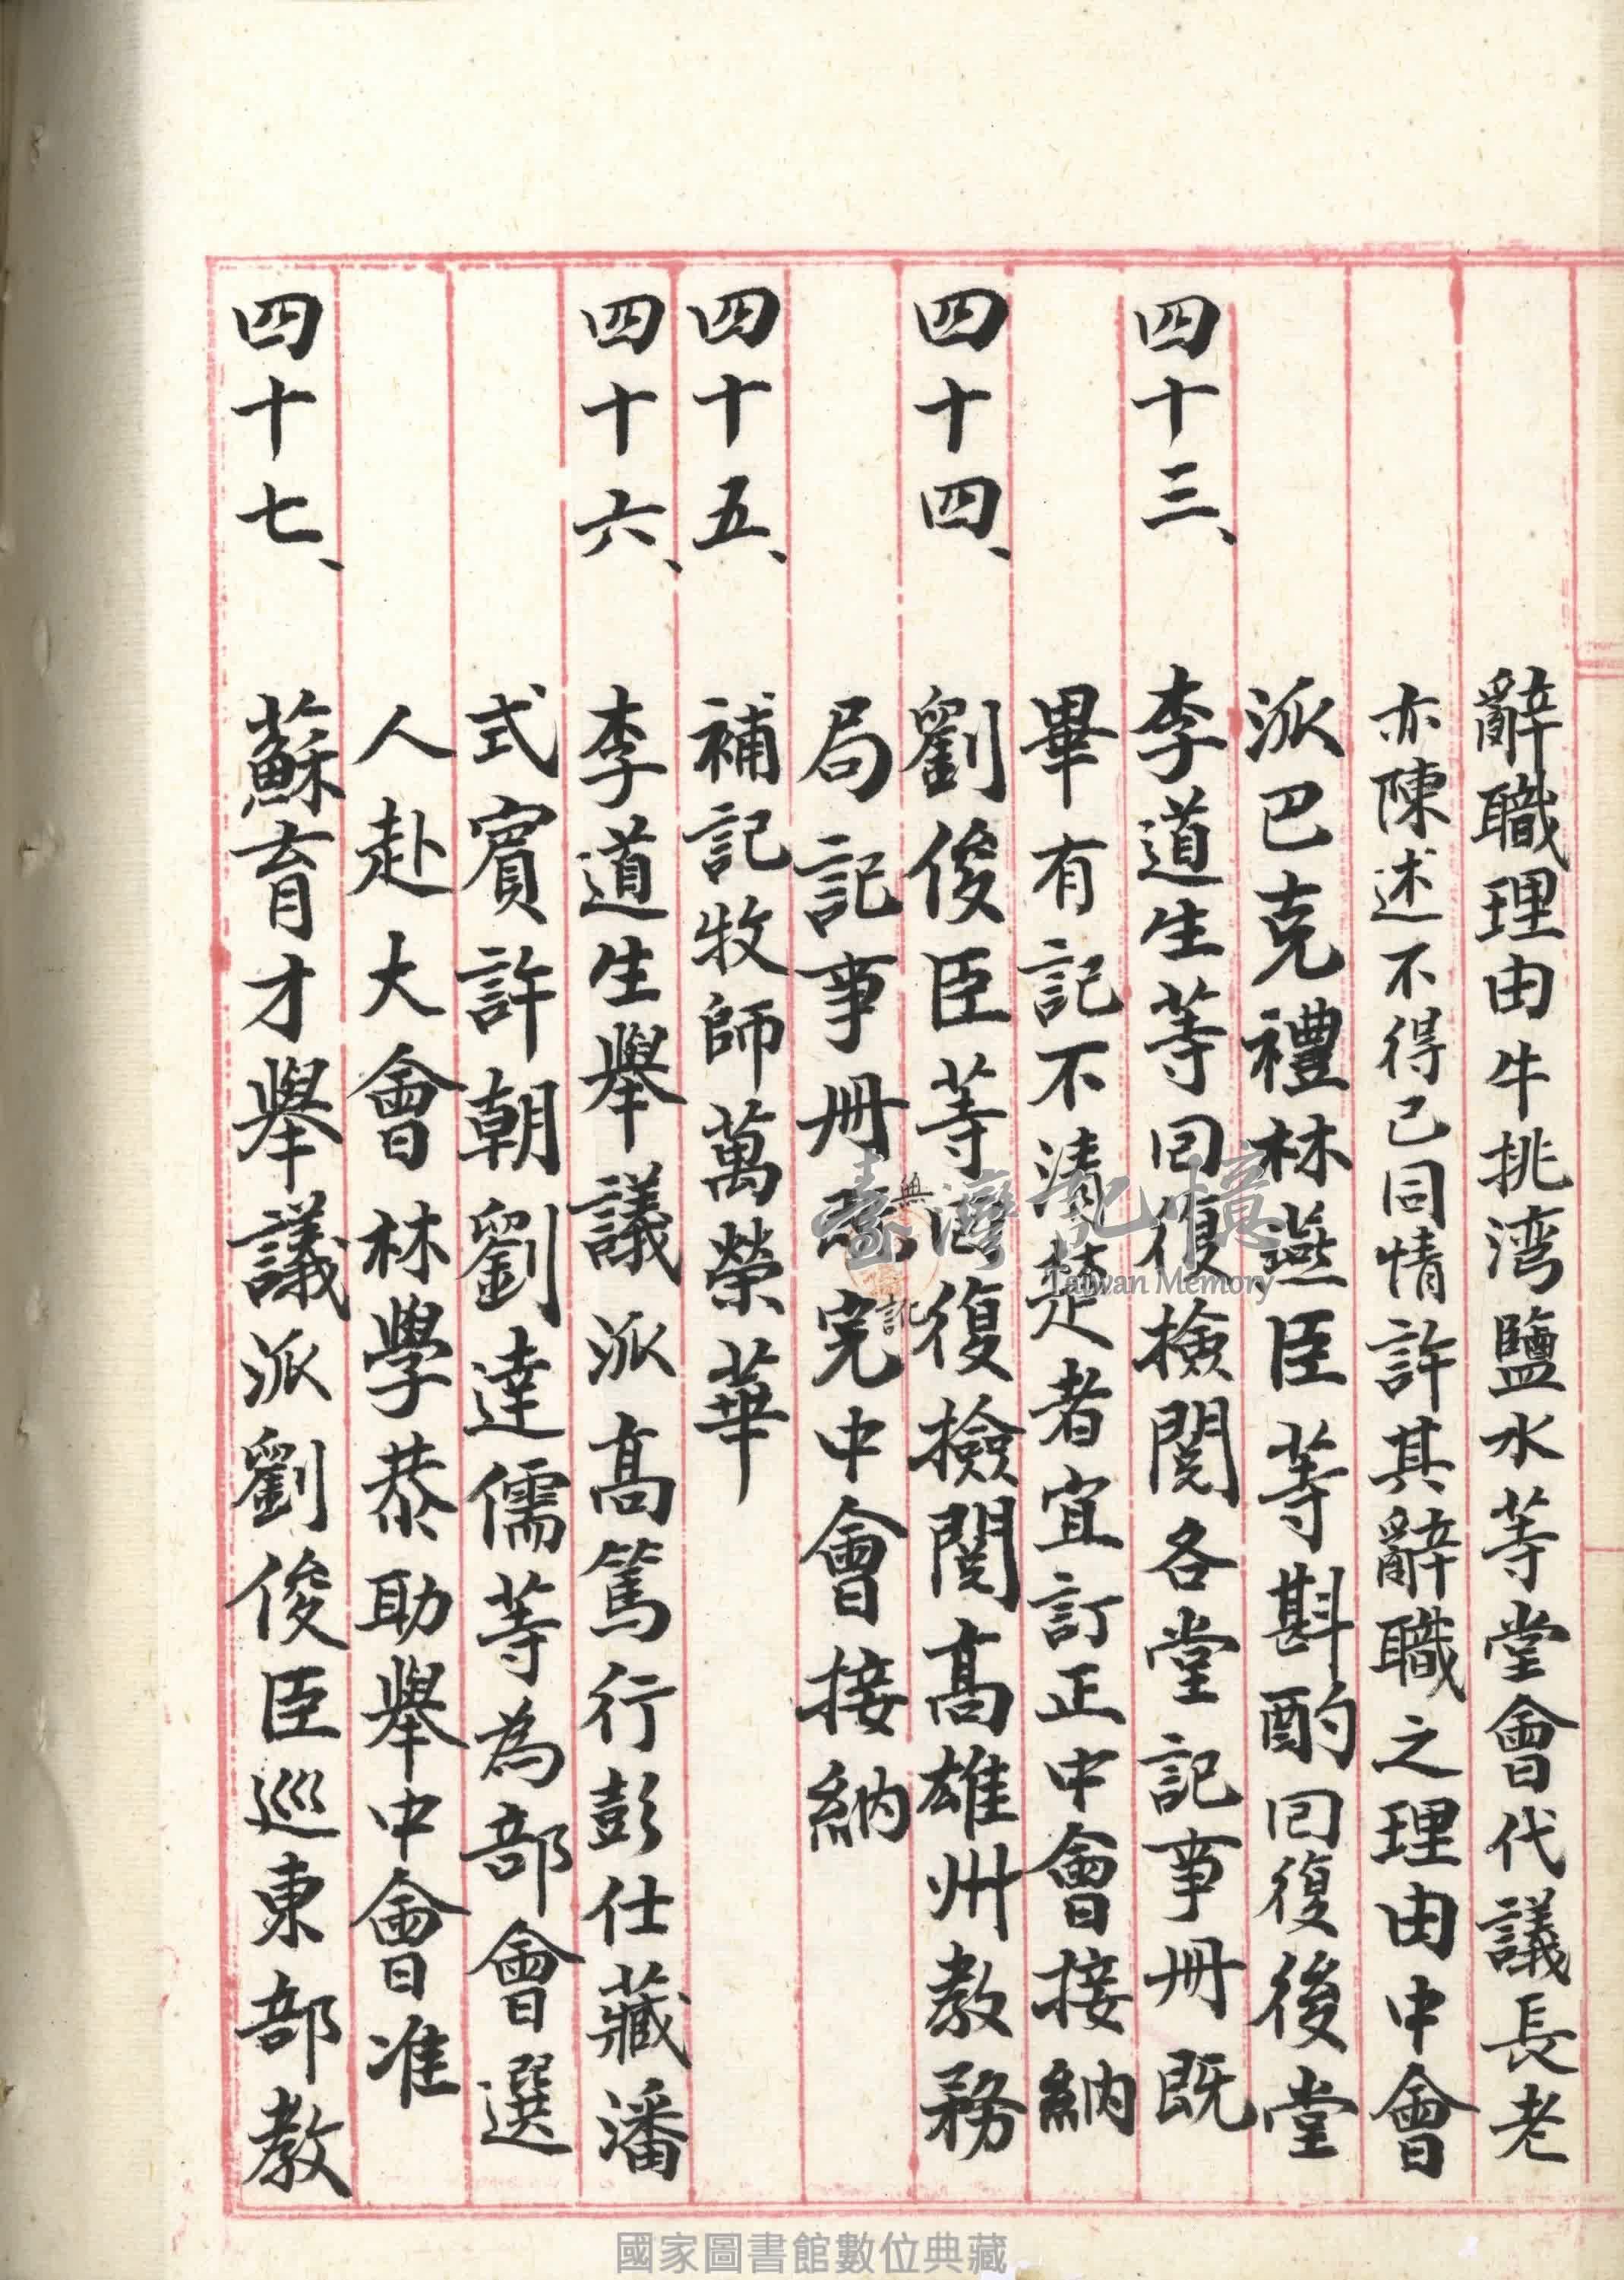 辭職理由牛挑湾鹽水等堂會代議長老
亦陳述不得已同情許其辭職之理由中會
派巴克禮林燕臣等斟酌囘復後堂
四十三、李道生等囘復檢閱各堂記事冊既
畢有記不清楚者宜訂正中會接納
四十四、劉俊臣等囘復檢閱高雄州教務
局記事冊完中會接納
四十五、補記牧師萬榮華
四十六、李道生舉議派高篤行彭仕藏潘
式賓許朝劉達儒等為部會選
人赴大會林學恭助舉中會准
四十七、蘇育才舉議派劉俊臣巡東部教
臺灣記憶
Taiwan Memory
國家圖書館數位典藏